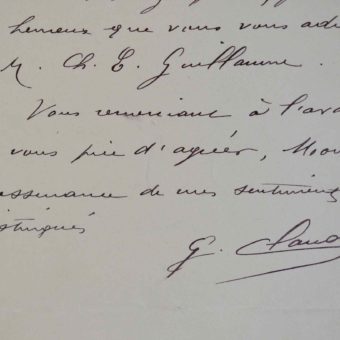 heureux que vous vous ad
M. Ch. E. Guillaume.
Vous remerciant à l'ava
vous prie d'agréer, Mon
assurance de mes sentiments
stingués
G. Claud